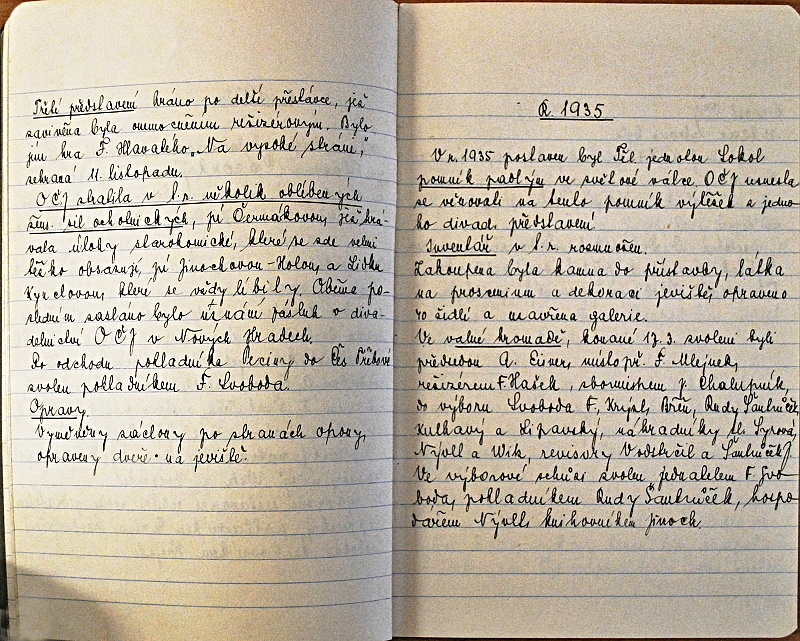 Třetí představení hráno po delší přestávce, jež
zaviněna byla onemocněním režizérovým. Bylo
jím hra F. Hlavatého „Na vysoké stráni“,
sehraná 11. listopadu.
OČJ ztratila v t. r. několik oblíbených
žen. sil ochotnických, pí Čermákovou, jež hrá-
vala úlohy starokomické, které se zde velmi
těžko obsazují, pí Jinochovou-Holou, a Lidku
Kynclovou, které se vždy líbily. Oběma po-
sledním zasláno bylo uznání zásluh o diva-
delnictví OČJ v Nových Hradech.
Po odchodu pokladníka Peciny do Čes Třebové
zvolen pokladníkem F. Svoboda.
Opravy.
Vyměněny záclony po stranách opony,
opraveny dveře na jeviště.
R. 1935
V r. 1935 postaven byl Těl. jednotou Sokol
pomník padlým ve světové válce. OČJ usnesla
se věnovati na tento pomník výtěžek z jedno-
ho divad. představení
Inventář v t. r. rozmnožen.
Zakoupena byla kamna do přístavby, látka
na proscenium a dekoraci jeviště, opraveno
70 židlí a uzavřena galerie.
Ve valné hromadě, konané 17.3. zvoleni byli
předsedou A. Eisner, místopř. F. Mlejnek,
režizérem F. Hašek, sbormistrem J. Chalupník,
do výboru Svoboda F., Krýsl, Brůn, Rudy Šantrůček,
Kulhavý a Lipavský, náhradníky Sl. Syrová,
Nývlt a Wik, revisory Vodstrčil a Šantrůček J.
Ve výborové schůzi zvolen jednatelem F. Svo-
boda, pokladníkem Rudy Šantrůček, hospo-
dářem Nývlt, knihovníkem Jinoch